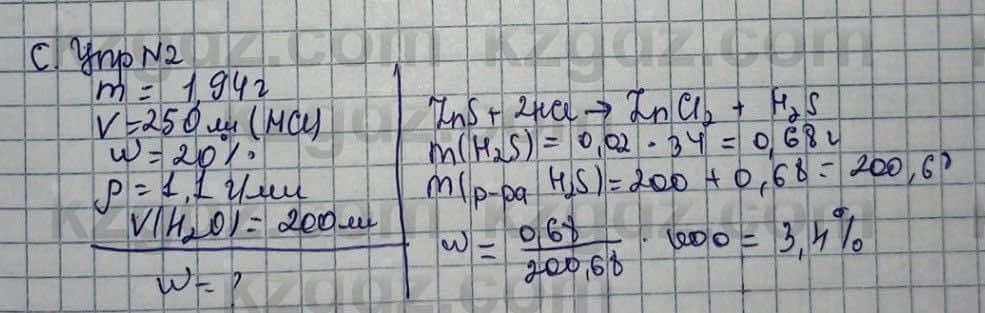 С. Упр N2
m = 1,94 г
V = 250 мл (HCl)
w = 20%
ρ = 1,1 г/мл
V(H₂O) = 200 мл
w - ?
ZnS + 2HCl → ZnCl₂ + H₂S
m(H₂S) = 0,02 · 34 = 0,68 г
m(р-ра H₂S) = 200 + 0,68 = 200,68
w = 0,68 / 200,68 · 100 = 3,4%
kzgdz.com kzgdz.com